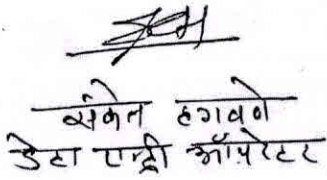 संकेत हगवणे
डेटा एन्ट्री ऑपरेटर